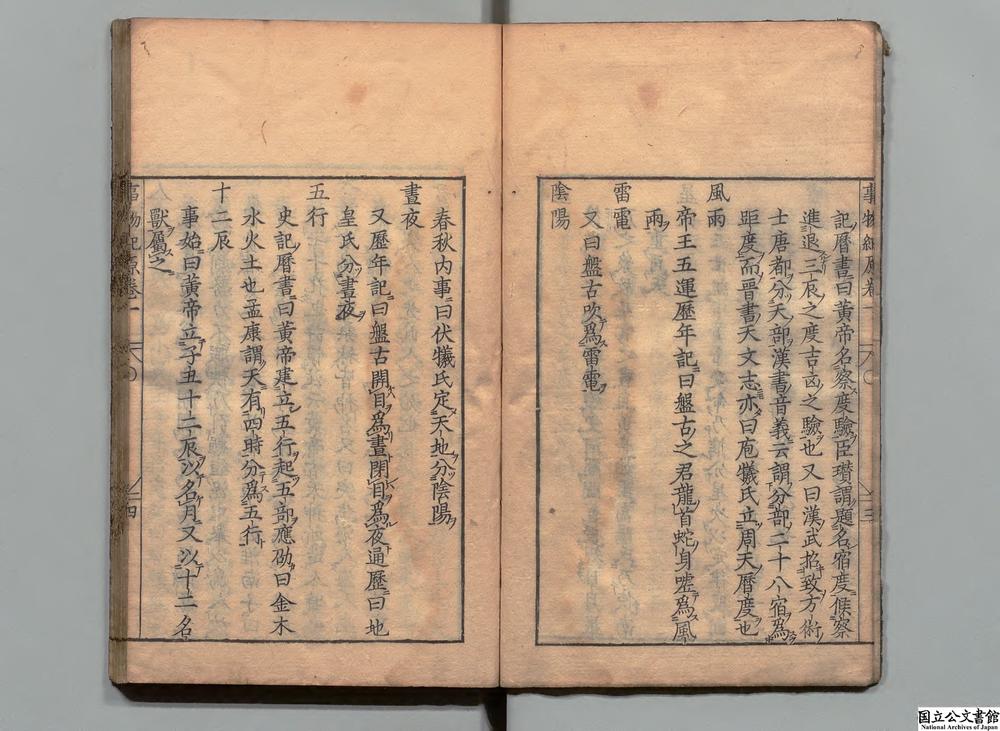 事物紀原卷一 三
記曆書曰黃帝名察度驗臣瓚謂題名宿度候察
進退三辰之度吉凶之驗也又曰漢武招致方術
士唐都分天部漢書音義云謂分部二十八宿為
距度而晉書天文志亦曰庖犧氏立周天曆度也
風雨
帝王五運歷年記曰盤古之君龍首蛇身噓為風
雨
雷電
又曰盤古吹為雷電
陰陽
春秋內事曰伏犧氏定天地分陰陽
晝夜
又歷年記曰盤古開目為晝閉目為夜通歷曰地
皇氏分晝夜
五行
史記曆書曰黃帝建立五行起五部應劭曰金木
水火土也孟康謂天有四時分為五行
十二辰
事始曰黃帝立子丑十二辰以名月又以十二名
獸屬之
事物紀原卷一 四
国立公文書館
National Archives of Japan